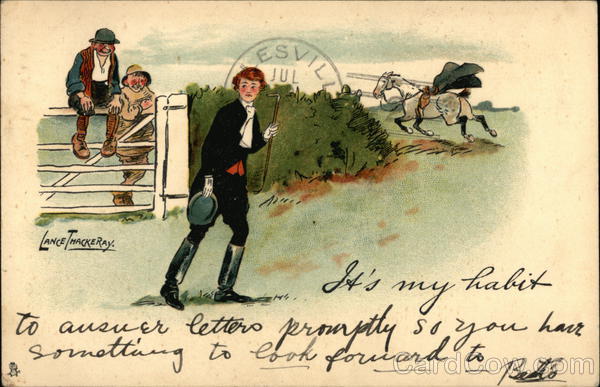 LESVILL
JUL
LANCE THACKERAY.
It's my habit
to answer letters promptly so you have
something to look forward to
CardCow.com